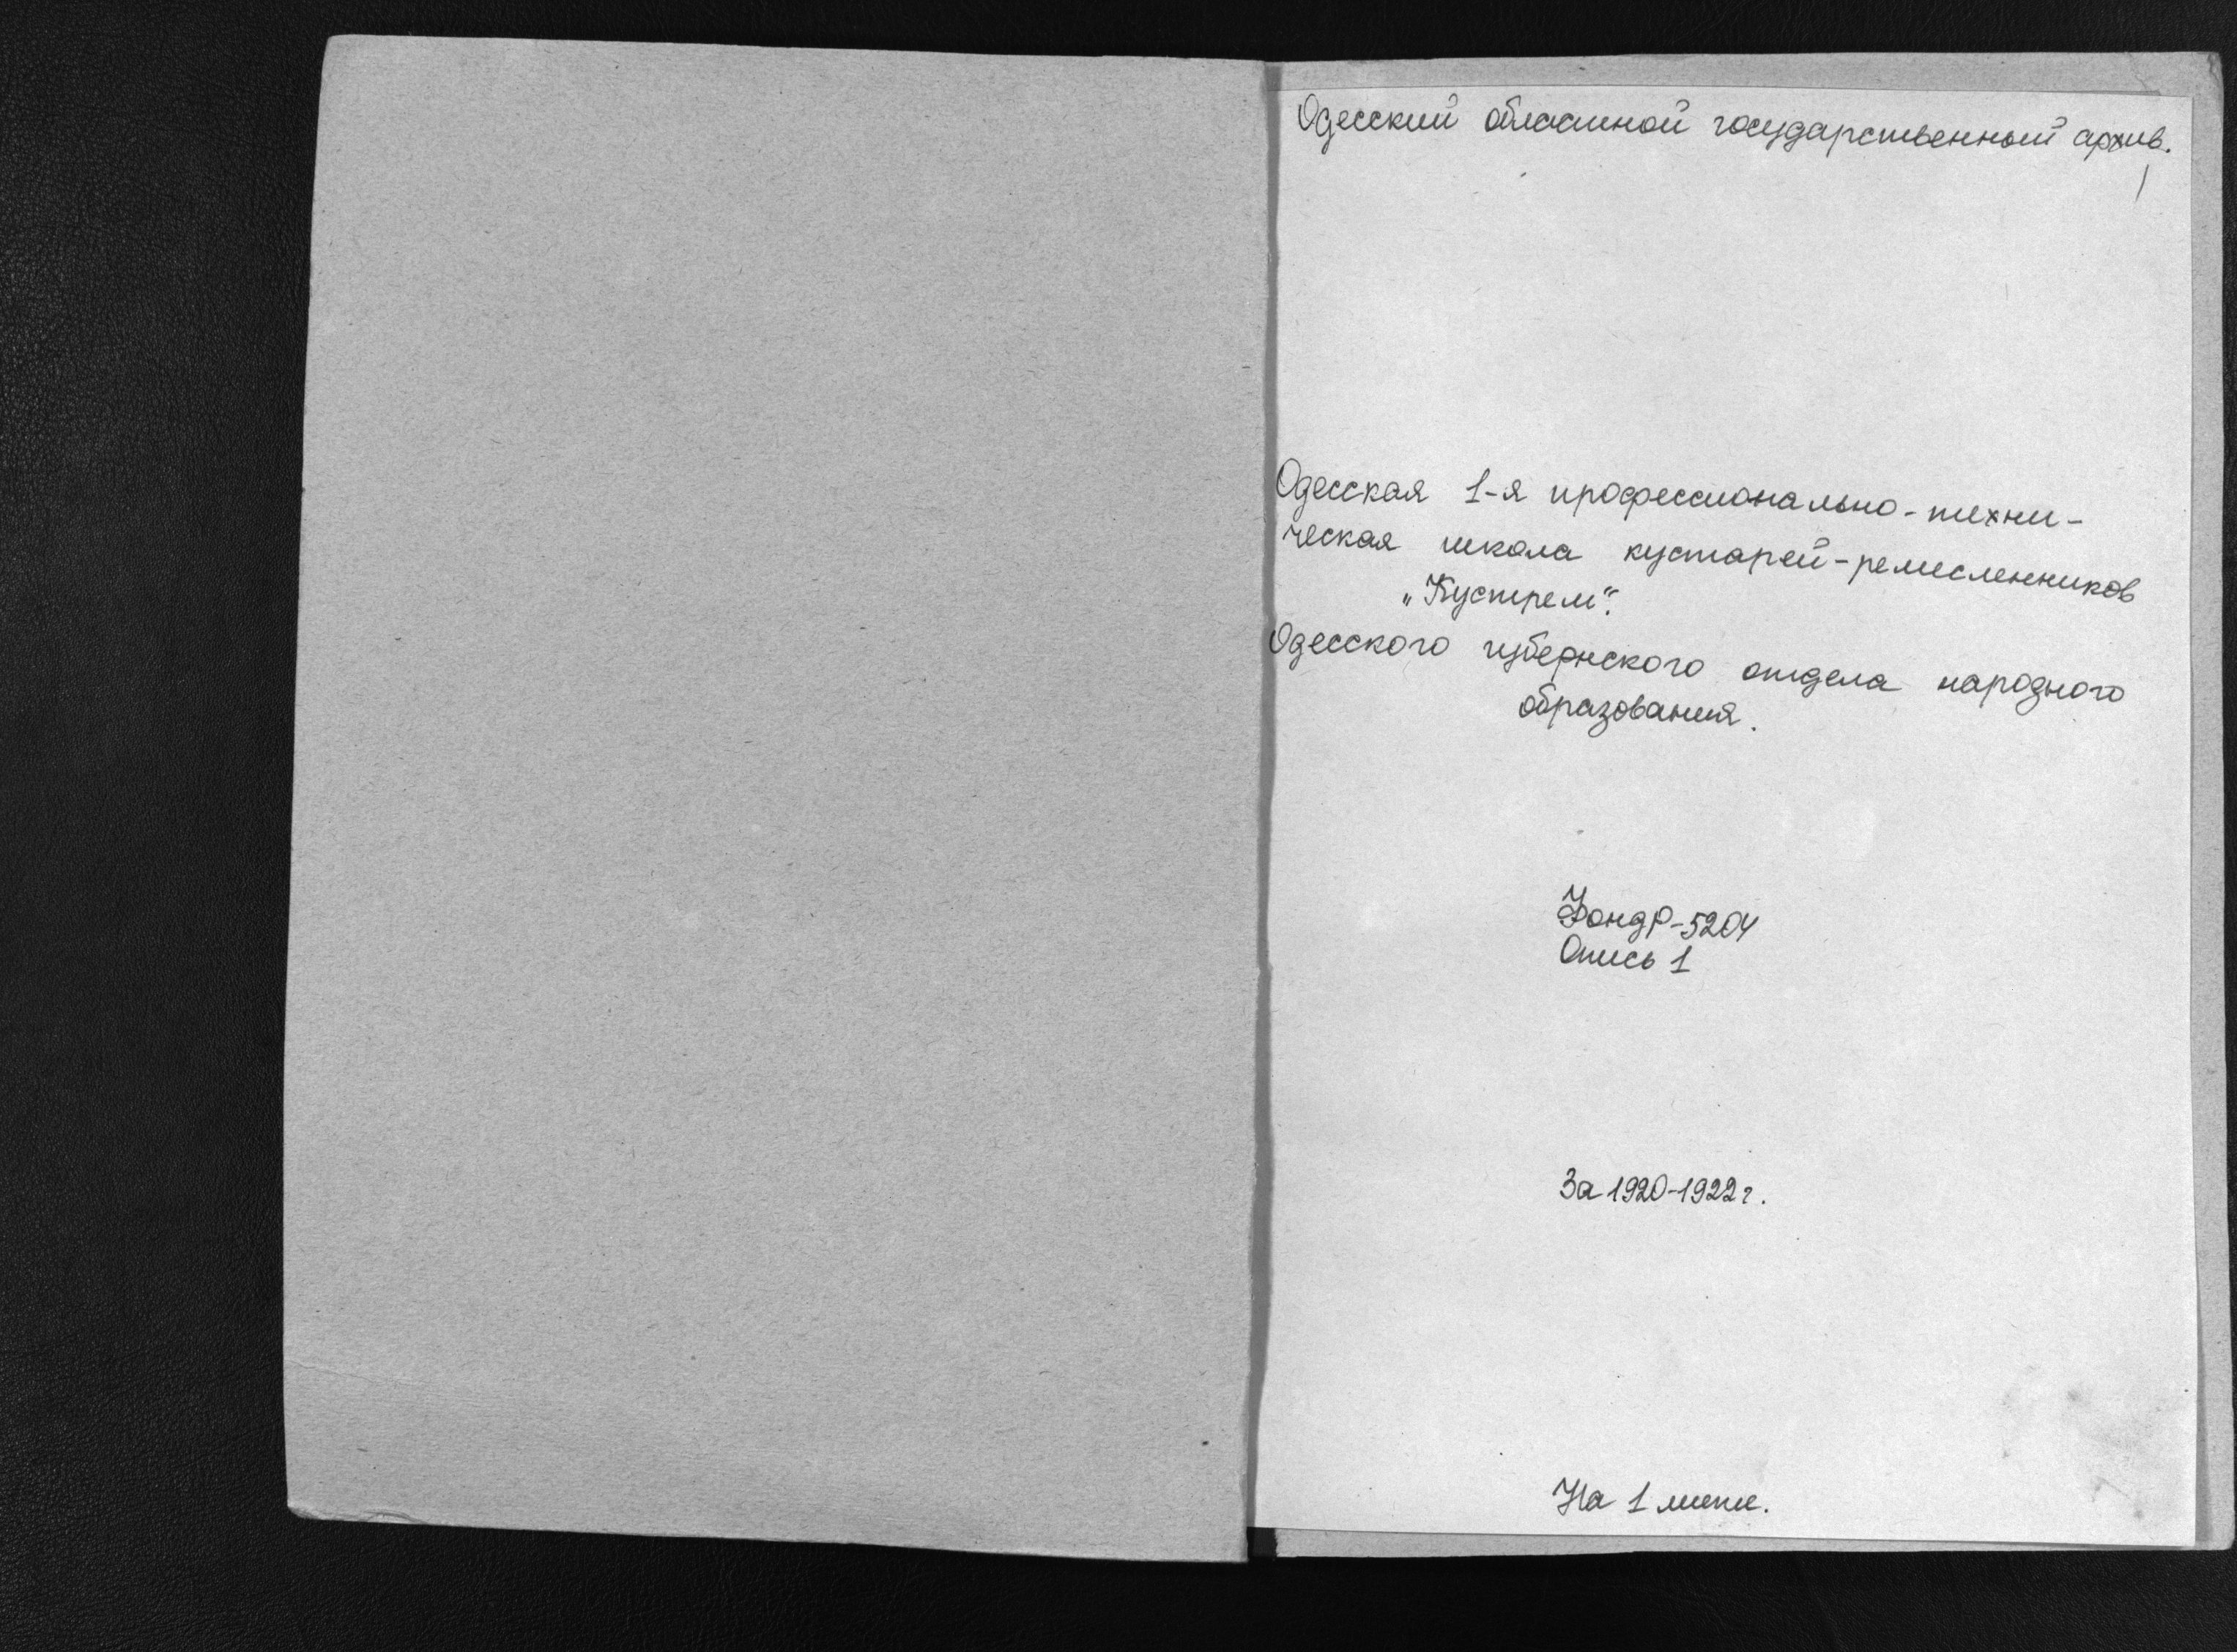 Одесский областной государственный архив.
1
Одесская 1-я професcионально-техни-
ческая школа кустарей-ремесленников
„Кустрем“.
Одесского губернского отдела народного
образования.
Фонд Р-5204
Опись 1
За 1920-1922 г.
На 1 листе.